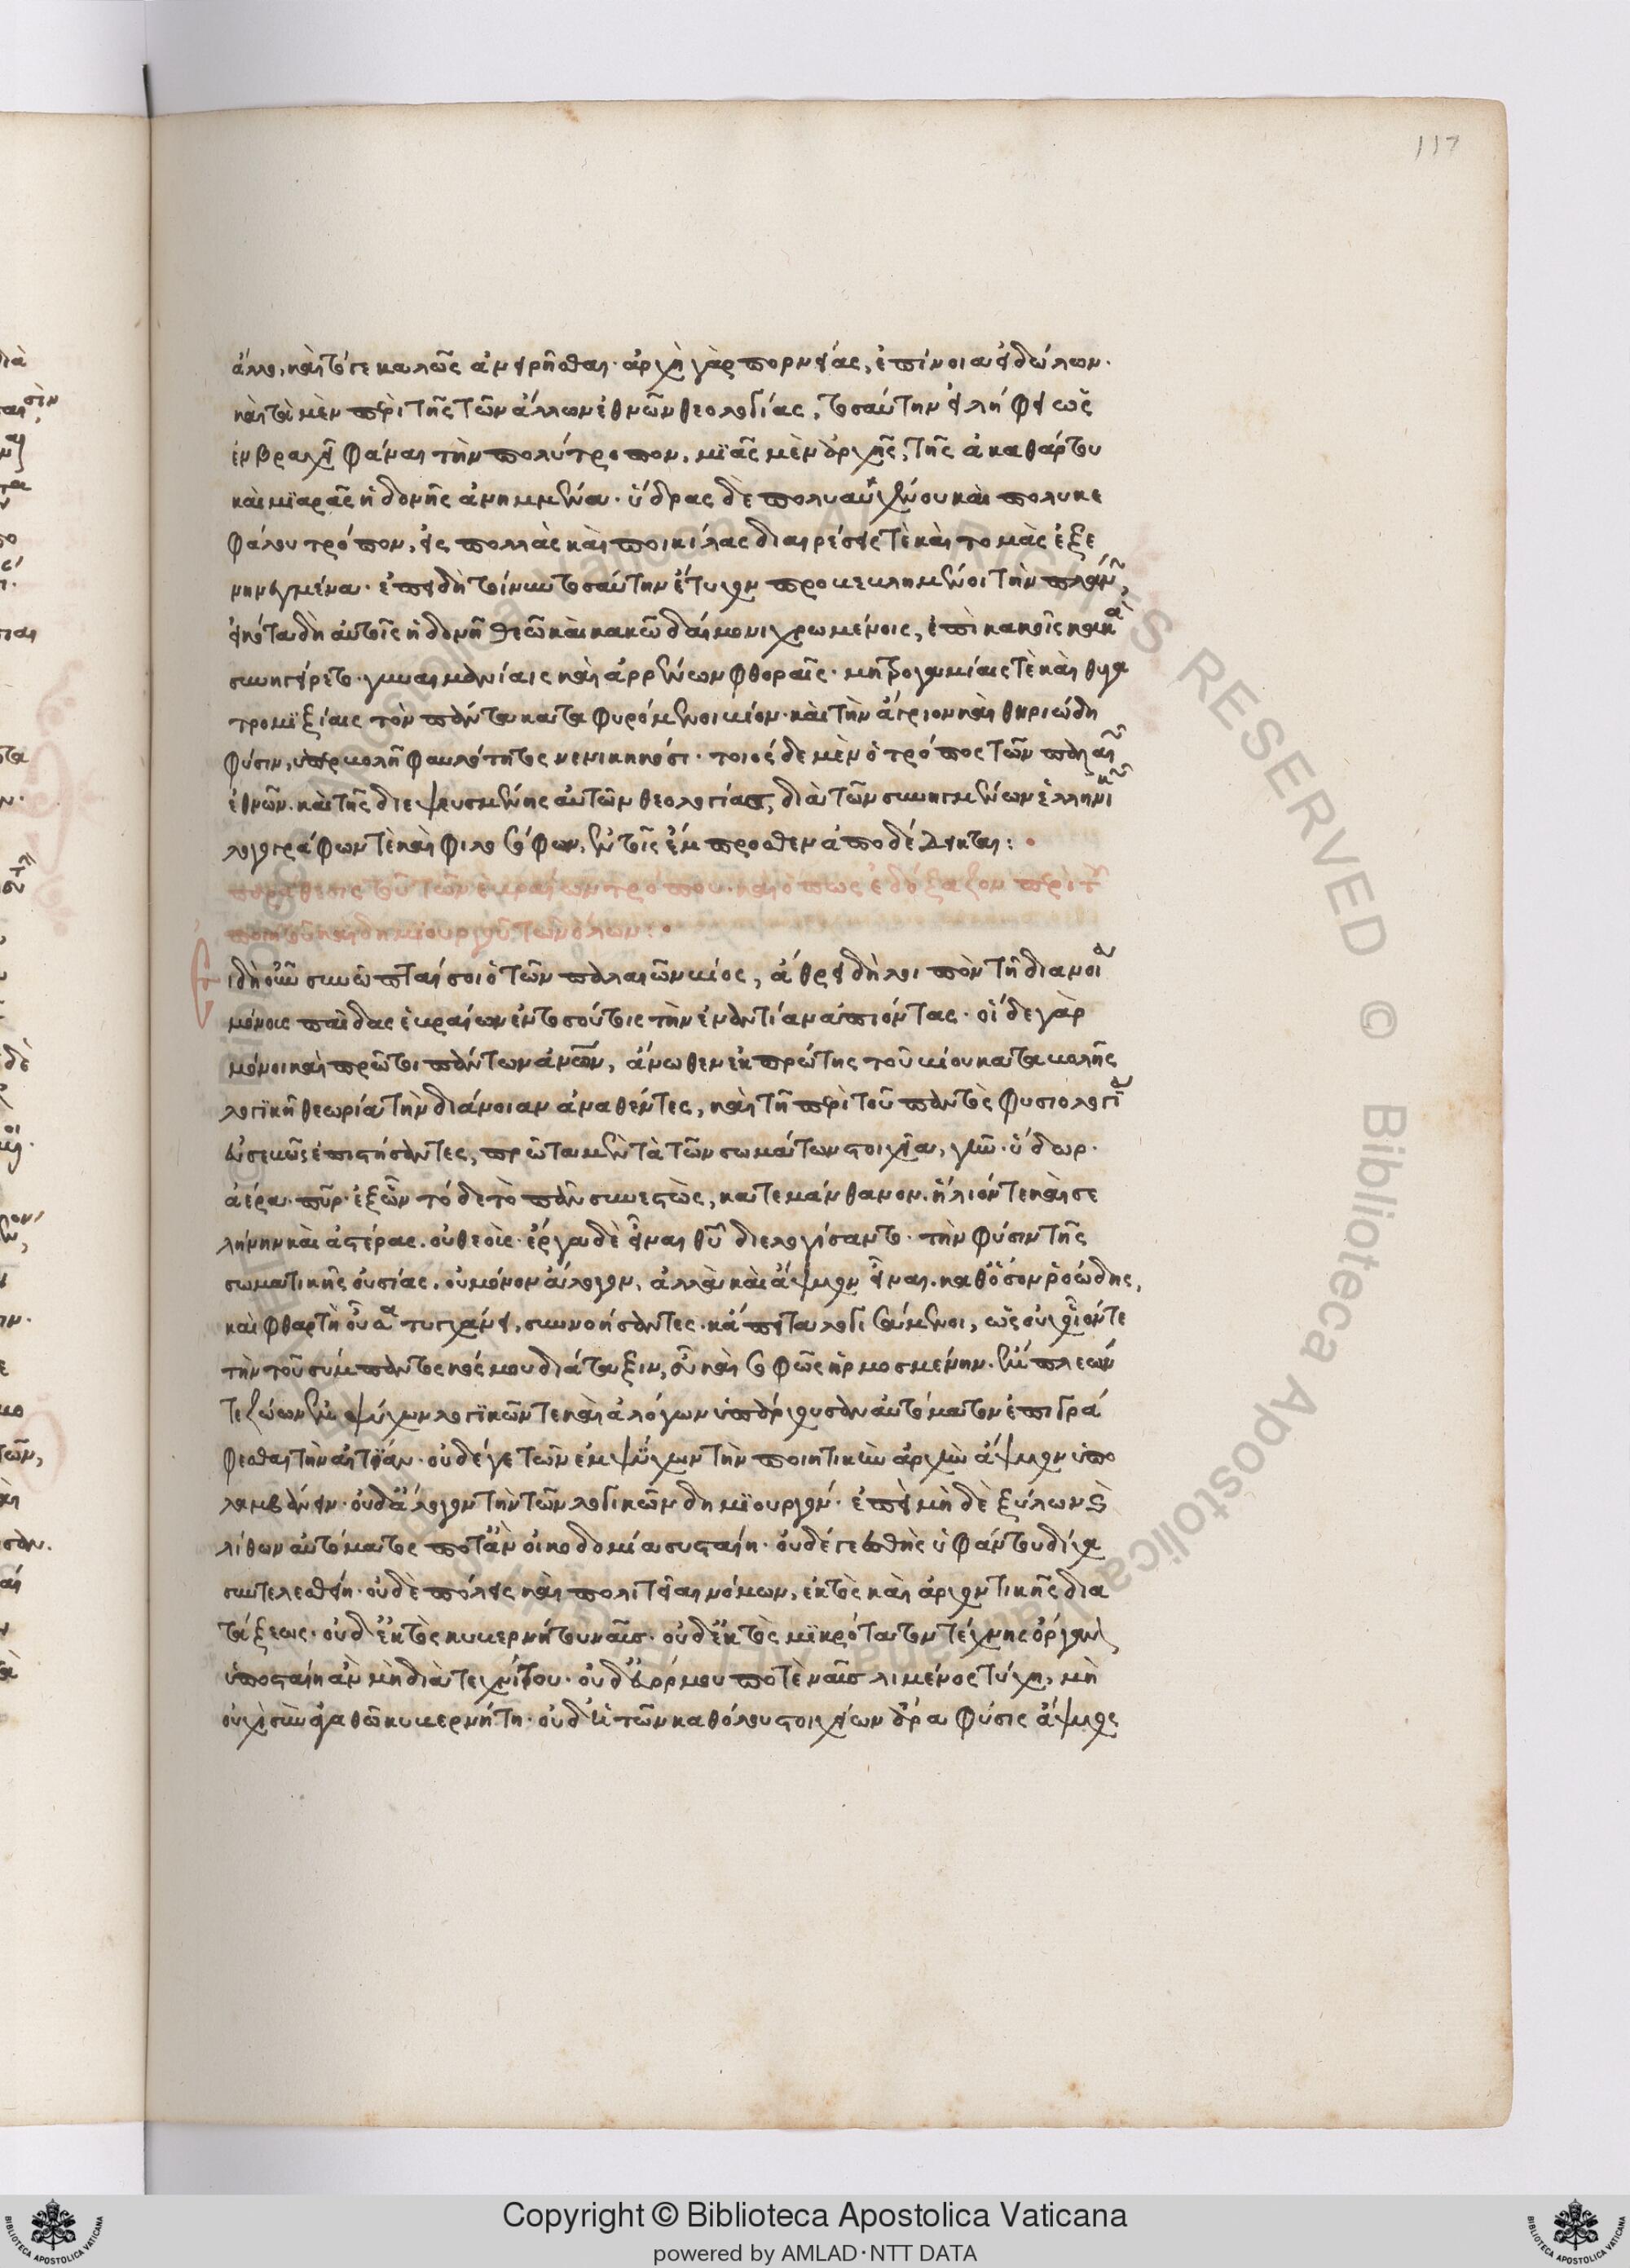 117
ἄλλο, καὶ τότε καλῶς ἀνειρῆσθαι· ἀρχὴ γὰρ πορνείας, ἐπίνοια εἰδώλων·
καὶ τὰ μὲν περὶ τῆς τῶν ἄλλων ἐθνῶν θεολογίας, τοσαύτην εἴληφεν ὡς
ἐν βραχεῖ φάναι τὴν πολύτροπον, μϊᾶς μὲν ἀρχῆς, τῆς ἀκαθάρτου
καὶ μϊαρᾶς ἡδονῆς ἀνημμένα· ὕδρας δὲ πολυαύχένου καὶ πολυκε
φάλου τρόπον, εἰς πολλὰς καὶ ποικίλας διαιρέσεις τὲ καὶ τομὰς ἐξε
νηνεγμένα· ἐπειδὴ τοίνυν τοσαύτην ἔτυχον προκεκλημένοι τὴν πλάνην,
εἰκότα δὴ αὐτοῖς ἡδονῆ θεῶ καὶ κακῶ δαίμονι χρωμένοις, ἐπὶ κακοῖς κακὰ
συνηγείρετο· γυναιμανίαις καὶ ἀρρένων φθοραῖς· μητρογαμίαις τὲ καὶ θυγα
τρομϊξίαις τὸν πάντα καταφυρόμενοι βίον· καὶ τὴν ἄγριον καὶ θηριώδη
φύσιν, ὑπερβολῆ φαυλότητος νενικηκότι· τοιόσδε μὲν ὁ τρόπος τῶν παλαιῶν
ἐθνῶν. καὶ τῆς διεψευσμένης αὐτῶν θεολογίας, διὰ τῶν συνηγμένων ἑλληνικῶν
λογογράφων τὲ καὶ φιλοσόφων, ἐν τοῖς ἔμπροσθεν ἀποδέδεικται:
παράθεσις τοῦ τῶν ἑβραίων τρόπου. καὶ ὅπως ἐδόξαζον περὶ τοῦ
ποιητοῦ καὶ δημϊουργοῦ τῶν ὅλων:
Ἐιδὴ οὖν συνῶπταί σοι ὁ τῶν παλαιῶν βίος, ἄθρει δὴ λοιπὸν τῆ διανοία
μόνους παῖδας ἑβραίων ἐν τοσούτοις τὴν ἐναντίαν ἀπιόντας· οἵδε γὰρ
μόνοι καὶ πρῶτοι πάντων ἀνων, ἄνωθεν ἐκ πρώτης τοῦ βίου καταβολῆς
λογϊκῆ θεωρία τὴν διάνοιαν ἀναθέντες, καὶ τῆ περὶ τοῦ παντὸς φυσιολογία
εὐσεβῶς ἐπιστήσαντες, πρῶτα μὲν τὰ τῶν σωμάτων στοιχεῖα, γῆν· ὕδωρ·
ἀέρα· πῦρ· ἐξ ὧν τόδε τὸ πᾶν συνεστὼς, κατεμάνθανον. ἥλιόν τε καὶ σε
λήνην καὶ ἀστέρας. οὐ θεοὺς· ἔργα δὲ εἶναι θῦ διελογίσαντο· τὴν φύσιν τῆς
σωματικῆς οὐσίας. οὐ μόνον ἄλογον, ἀλλὰ καὶ ἄψυχον εἶναι. καθ' ὅσον ῥοώδης,
καὶ φθαρτὴ οὖσα τυγχάνει, συννοήσαντες. κἄπειτα λογισάμενοι, ὡς οὐχ οἷόν τε
τὴν τοῦ σύμπαντος κόσμου διάταξιν, εὖ καὶ σοφῶς ἡρμοσμένην. ἔμπλεών
τε ζώων ἐμψύχων λογϊκῶν τε καὶ ἀλόγων ὑπάρχουσαν αὐτόματον ἐπιγρά
φεσθαι τὴν αἰτίαν· οὐδέ γε τῶν ἐμψύχων τὴν ποιητικὴν ἀρχὴν ἄψυχον ὑπο
λαμβάνειν· οὐδ' ἄλογον τὴν τῶν λογικῶν δημϊουργόν· ἐπεὶ μὴ δὲ ξύλων καὶ
λίθων αὐτόματος ποτ' ἂν οἰκοδομία συσταίη· οὐδέ γε ἐσθὴς ὑφάντου δίχα
συντελεσθείη· οὐδὲ πόλεις καὶ πολιτεῖαι νόμων, ἐκτὸς καὶ ἀρχοντικῆς δια
τάξεως· οὐδ' ἐκτὸς κυβερνήτου ναῦς· οὐδ' ἐκτὸς μϊκρότατον τέχνης ὄργανον
ὑποσταίη ἂν μὴ διὰ τεχνίτου· οὐδ' εὐόρμου ποτὲ ναῦς λιμένος τύχῃ, μὴ
οὐχὶ σὺν ἀγαθῶ κυβερνήτη· οὐδ' ἡ τῶν καθόλου στοιχείων ἄρα φύσις ἄψυχος